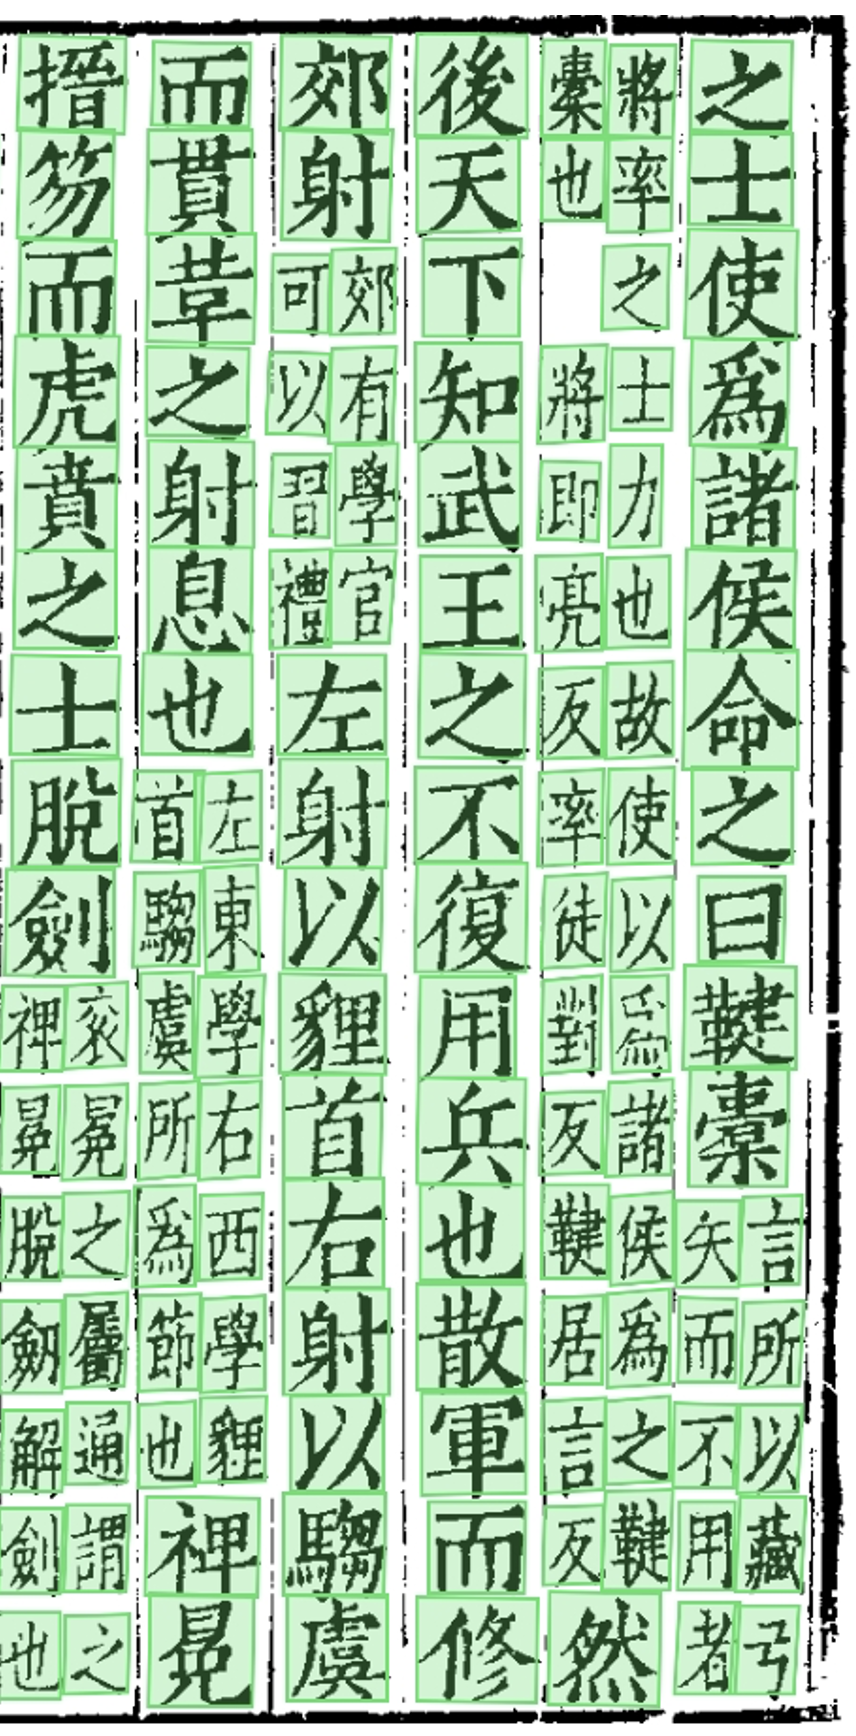 之士使爲諸侯命之曰鞬櫜言所以藏弓矢而不用者
將率之士力也故使以爲諸侯爲之鞬櫜也將即亮反率徒對反鞬居言反然
後天下知武王之不復用兵也散軍而修
郊射郊有學官可以習禮左射以貍首右射以騶虞
而貫革之射息也左東學右西學貍首騶虞所為節也裨冕
搢笏而虎賁之士脫劍衮冕之屬通謂之裨冕脫劔解劍也